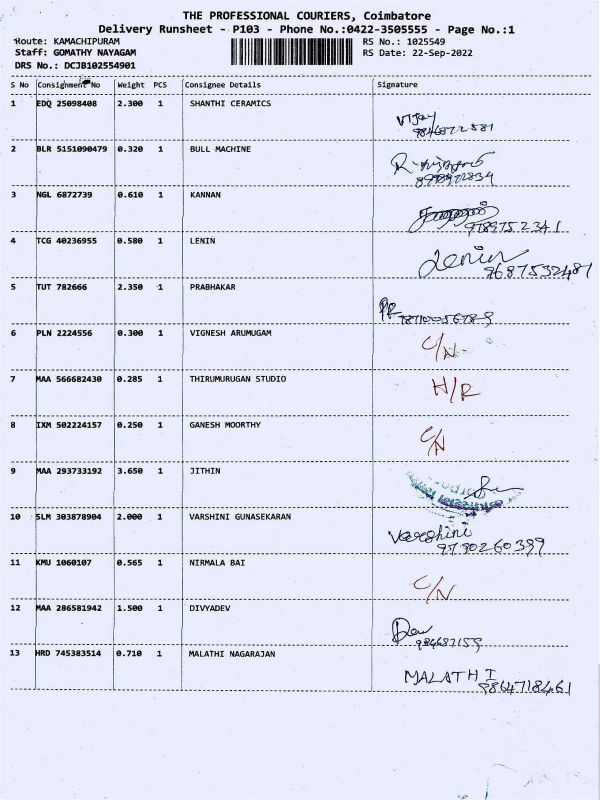 THE PROFESSIONAL COURIERS, Coimbatore
Delivery Runsheet - P103 - Phone No.:0422-3505555 - Page No.:1
Route: KAMACHIPURAM RS No.: 1025549
Staff: GOMATHY NAYAGAM RS Date: 22-Sep-2022
DRS No.: DCJB102554901
S No Consignment No Weight PCS Consignee Details Signature
1 EDQ 25098408 2.300 1 SHANTHI CERAMICS
Vijay
9846872581
2 BLR 5151090479 0.320 1 BULL MACHINE
3 NGL 6872739 0.610 1 KANNAN
9789752341
4 TCG 40236955 0.580 1 LENIN
Lenin
9687532487
5 TUT 782666 2.350 1 PRABHAKAR
PR
6 PLN 2224556 0.300 1 VIGNESH ARUMUGAM
C/N
7 MAA 566682430 0.285 1 THIRUMURUGAN STUDIO
H/R
8 IXM 502224157 0.250 1 GANESH MOORTHY
C/N
9 MAA 293733192 3.650 1 JITHIN
10 SLM 303878904 2.000 1 VARSHINI GUNASEKARAN
Varshini
9790260399
11 KMU 1060107 0.565 1 NIRMALA BAI
C/N
12 MAA 286581942 1.500 1 DIVYADEV
Dev
13 HRD 745383514 0.710 1 MALATHI NAGARAJAN
MALATHI
9864718461